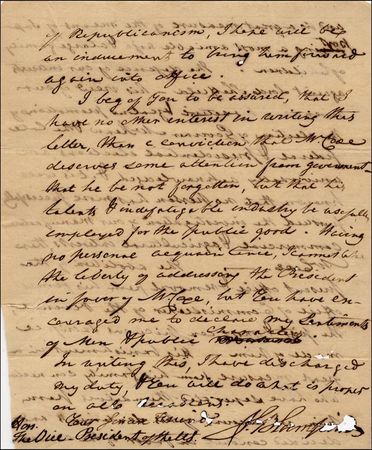 of Republicanism, I hope will be
an inducement to bring him forward
again into office.
I beg of you to be assured, that I
have no other interest in writing this
letter, than a conviction that Mr. Coxe
deserves some attention from government
that he be not forgotten, but that his
talents & indefatigable industry be usefully
employed for the public good. Having
no personal acquaintance, I cannot take
the liberty of addressing the President
in favor of Mr Coxe, but you have en-
couraged me to declare my sentiments
of Men & public
characters
In writing this I have discharged
my duty, & you will do what is proper
on all
Your sincere friend
Hon.
The Vice President of the US.